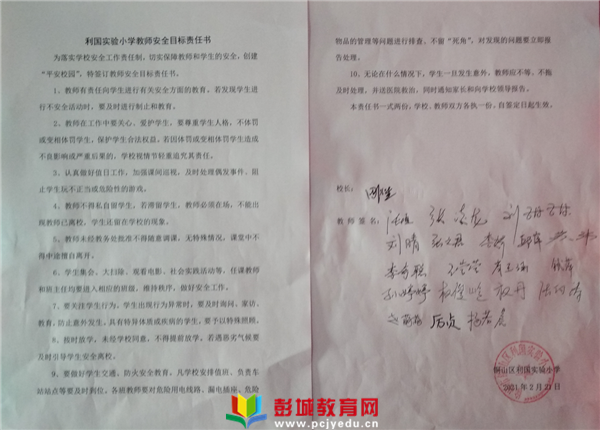 利国实验小学教师安全目标责任书
为落实学校安全工作责任制，切实保障教师和学生的安全，创建
“平安校园”，特签订教师安全目标责任书。
1、教师有责任向学生进行有关安全方面的教育，若发现学生进
行不安全活动时，要及时进行制止和教育。
2、教师在工作中要关心、爱护学生，要尊重学生人格，不体罚
或变相体罚学生，保护学生合法权益，若因体罚或变相体罚学生造成
不良影响或严重后果的，学校视情节轻重追究其责任。
3、认真做好值日工作，加强课间巡视，及时处理偶发事件，阻
止学生玩不正当或危险性的游戏。
4、教师不得私自留学生，若滞留学生，教师必须在场，不能出
现教师已离校，学生还留在学校的现象。
5、教师未经教务处批准不得随意调课，无特殊情况，课堂中不
得中途擅自离开。
6、学生集会、大扫除、观看电影、社会实践活动等，任课教师
和班主任均要进入相应的班级，维持秩序，做好安全工作。
7、要关注学生行为，学生出现行为异常时，要及时询问、家访、
教育，防止意外发生，具有特异体质或疾病的学生，要予以特殊照顾。
8、按时放学，未经学校同意，不得提前放学，若遇恶劣气候要
及时引导学生安全离校。
9、要做好学生交通、防火安全教育，凡学校安排值班、负责车
站站点等要及时到位，各班教师要对危险用电线路、漏电插座、危险
物品的管理等问题进行排查，不留“死角”，对发现的问题要立即报
告处理。
10、无论在什么情况下，学生一旦发生意外，教师应不等、不拖
及时处理，并送医院救治，同时通知家长和向学校领导报告。
本责任书一式两份，学校、教师双方各执一份，自签定日起生效。
校长：
教师签名：
刘晴
厉贞
铜山区利国实验小学
2021年2月23日
彭城教育网
www.pcjyedu.cn